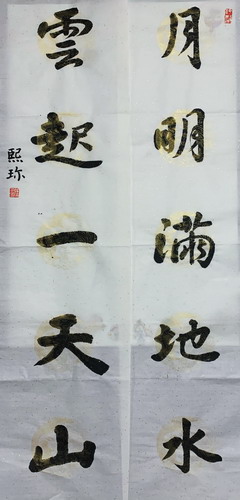 月明滿地水
雲起一天山
熙珎